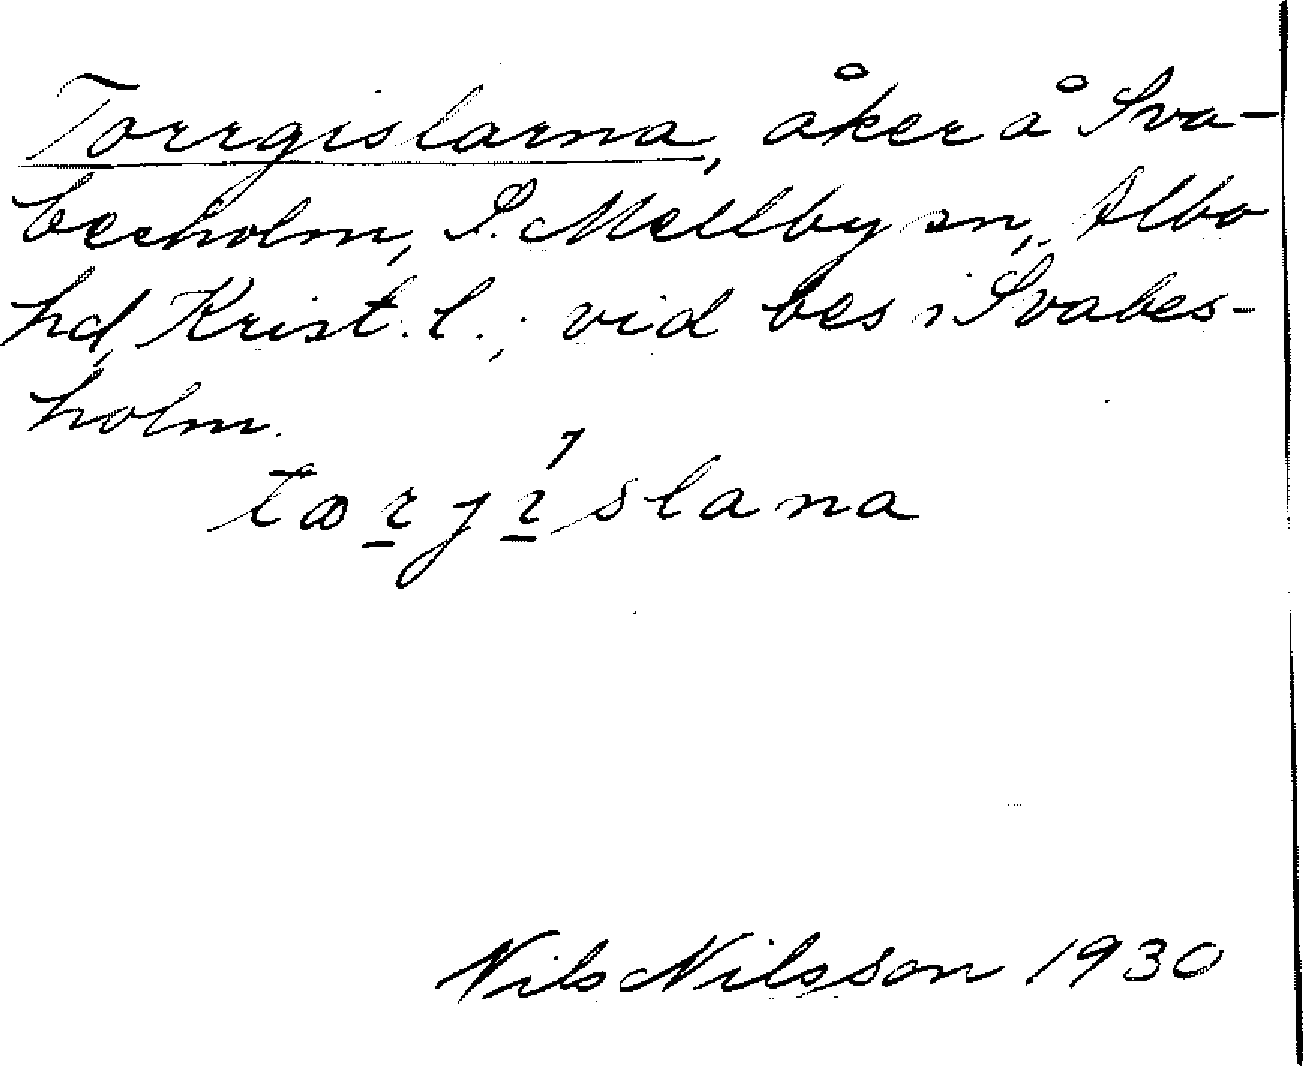 Torrgislarna, åker å Sva-
besholm, S. Mellby sn, Albo
hd, Krist. l.; vid bes i Svabes-
holm.
tɷrjíslana
Nils Nilsson 1930